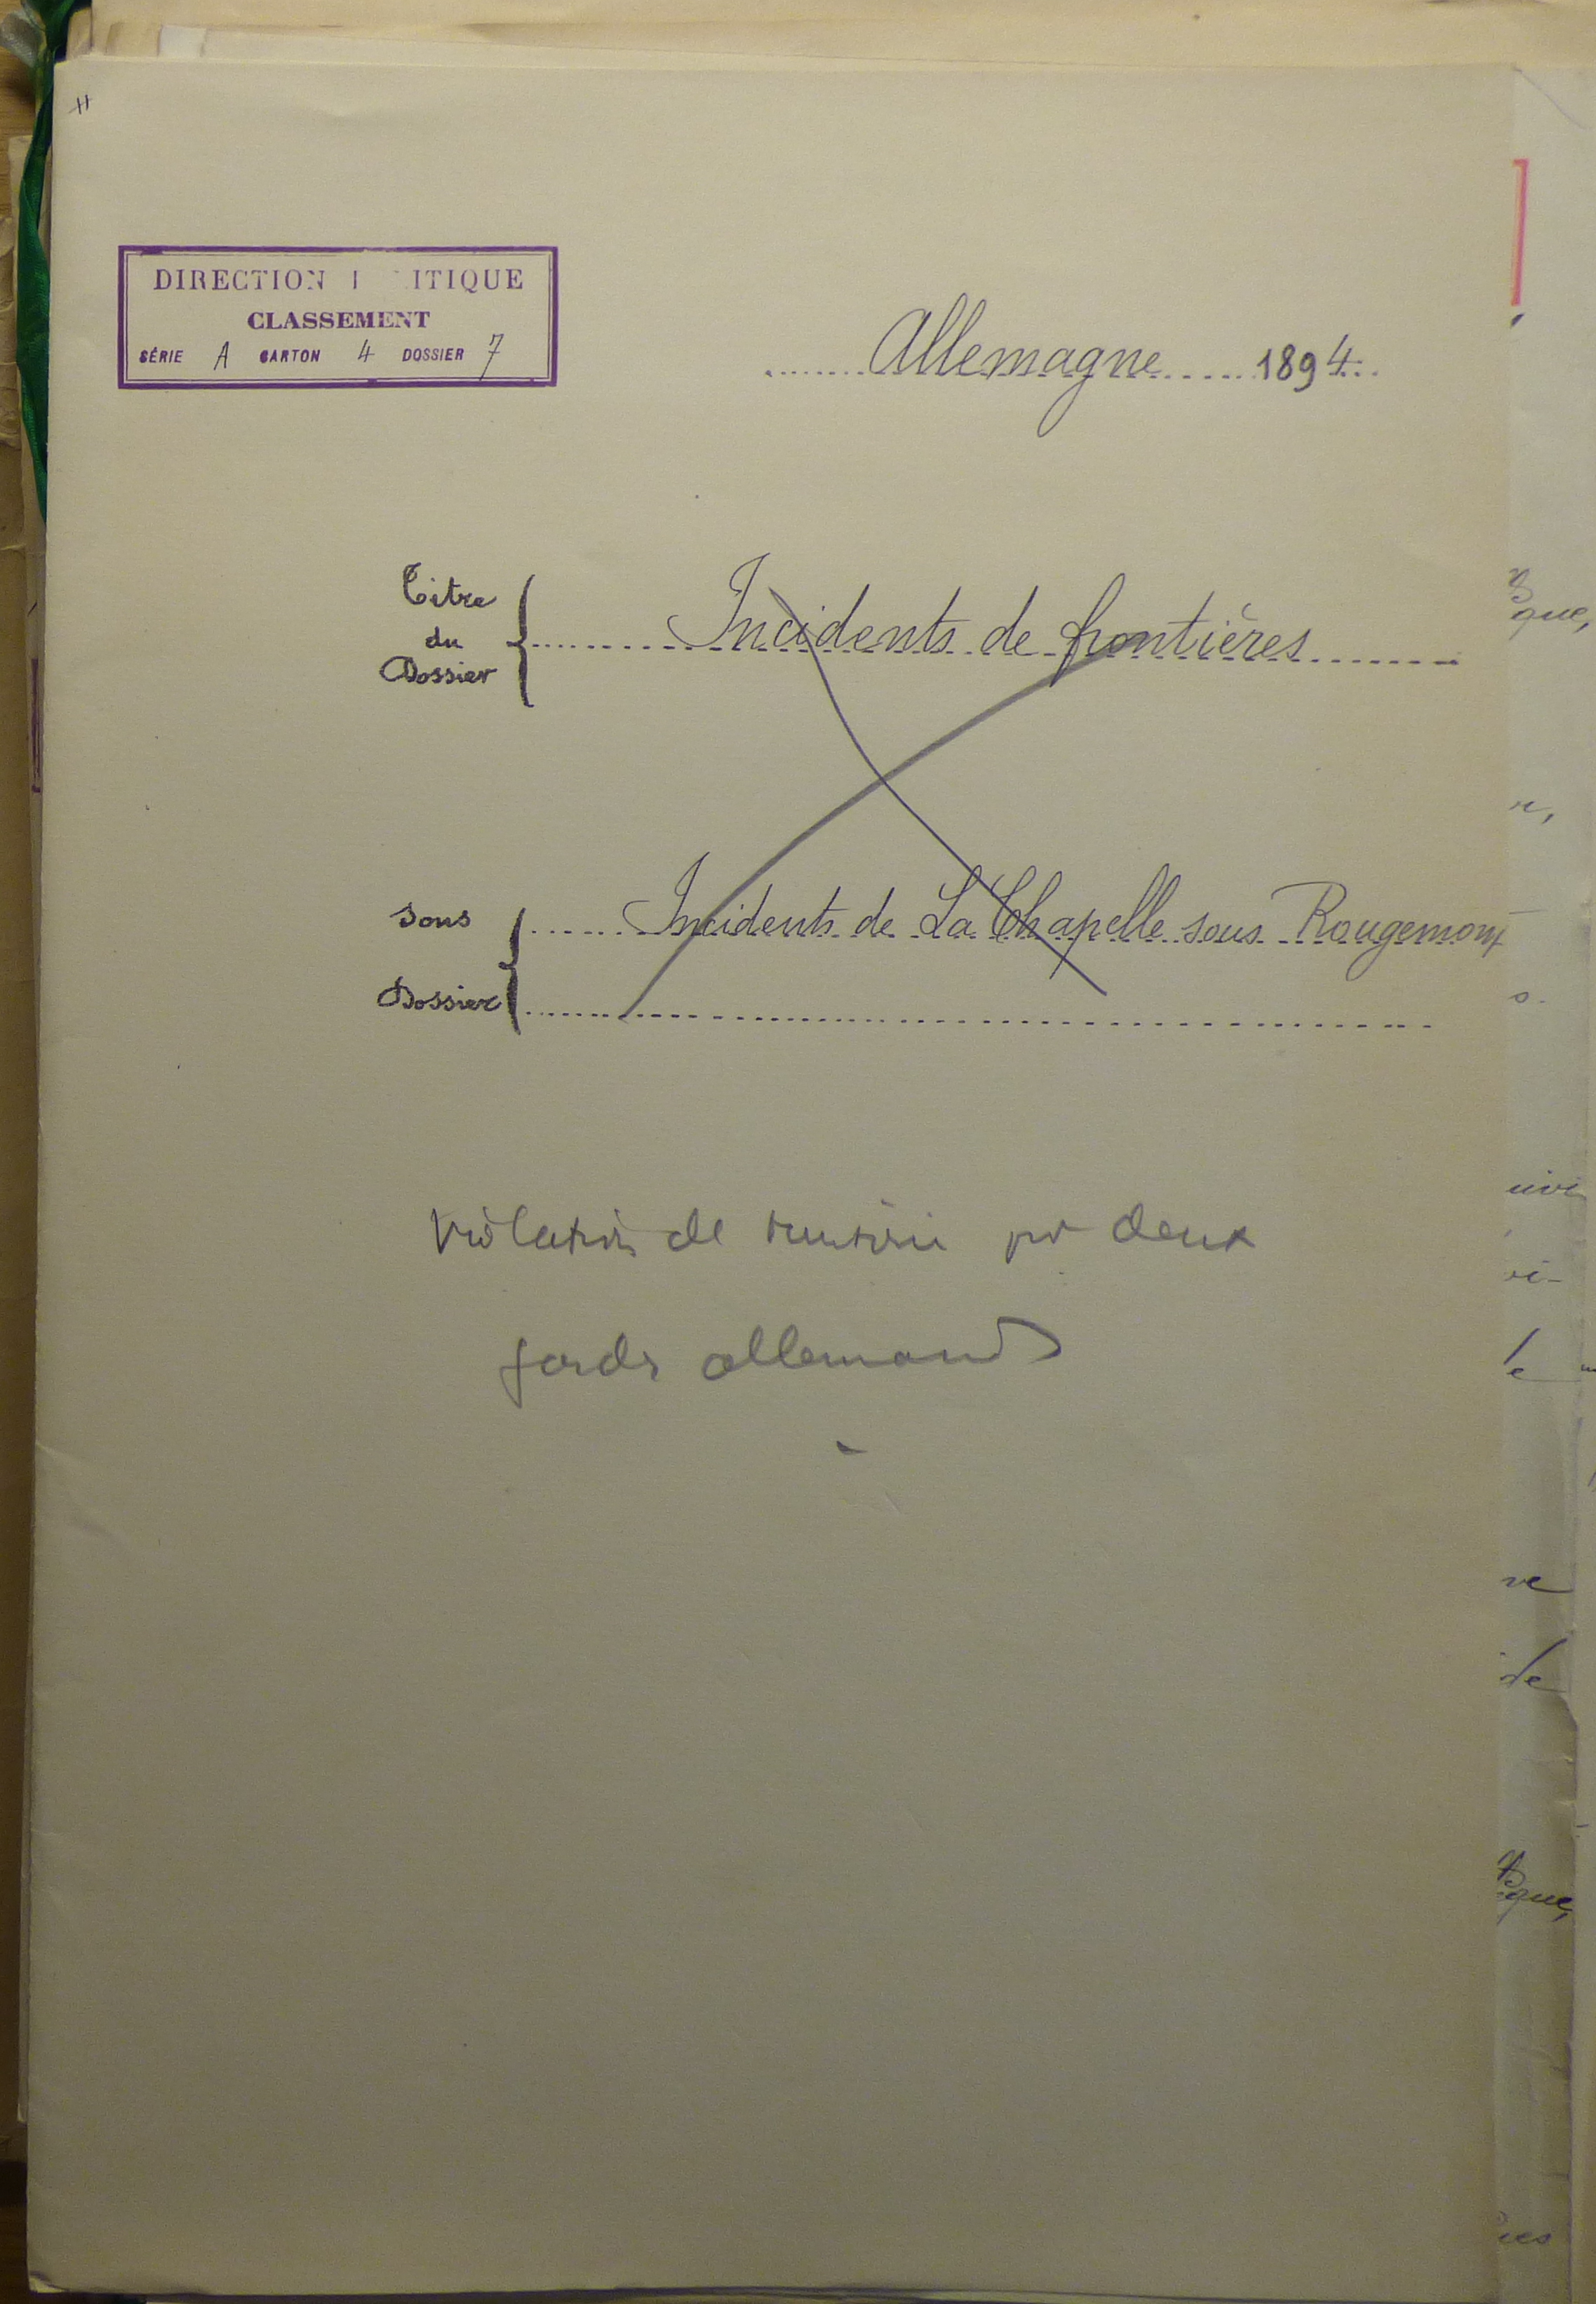 DIRECTION P ITIQUE
CLASSEMENT
SÉRIE A CARTON 4 DOSSIER 7
Allemagne 1894
Titre
du
Dossier
Incidents de frontières
Sous
Dossier
Incidents de La Chapelle sous Rougemont
Violation de territoire par deux
gardes allemands
que,
n,
s.
le
ve
de
que,